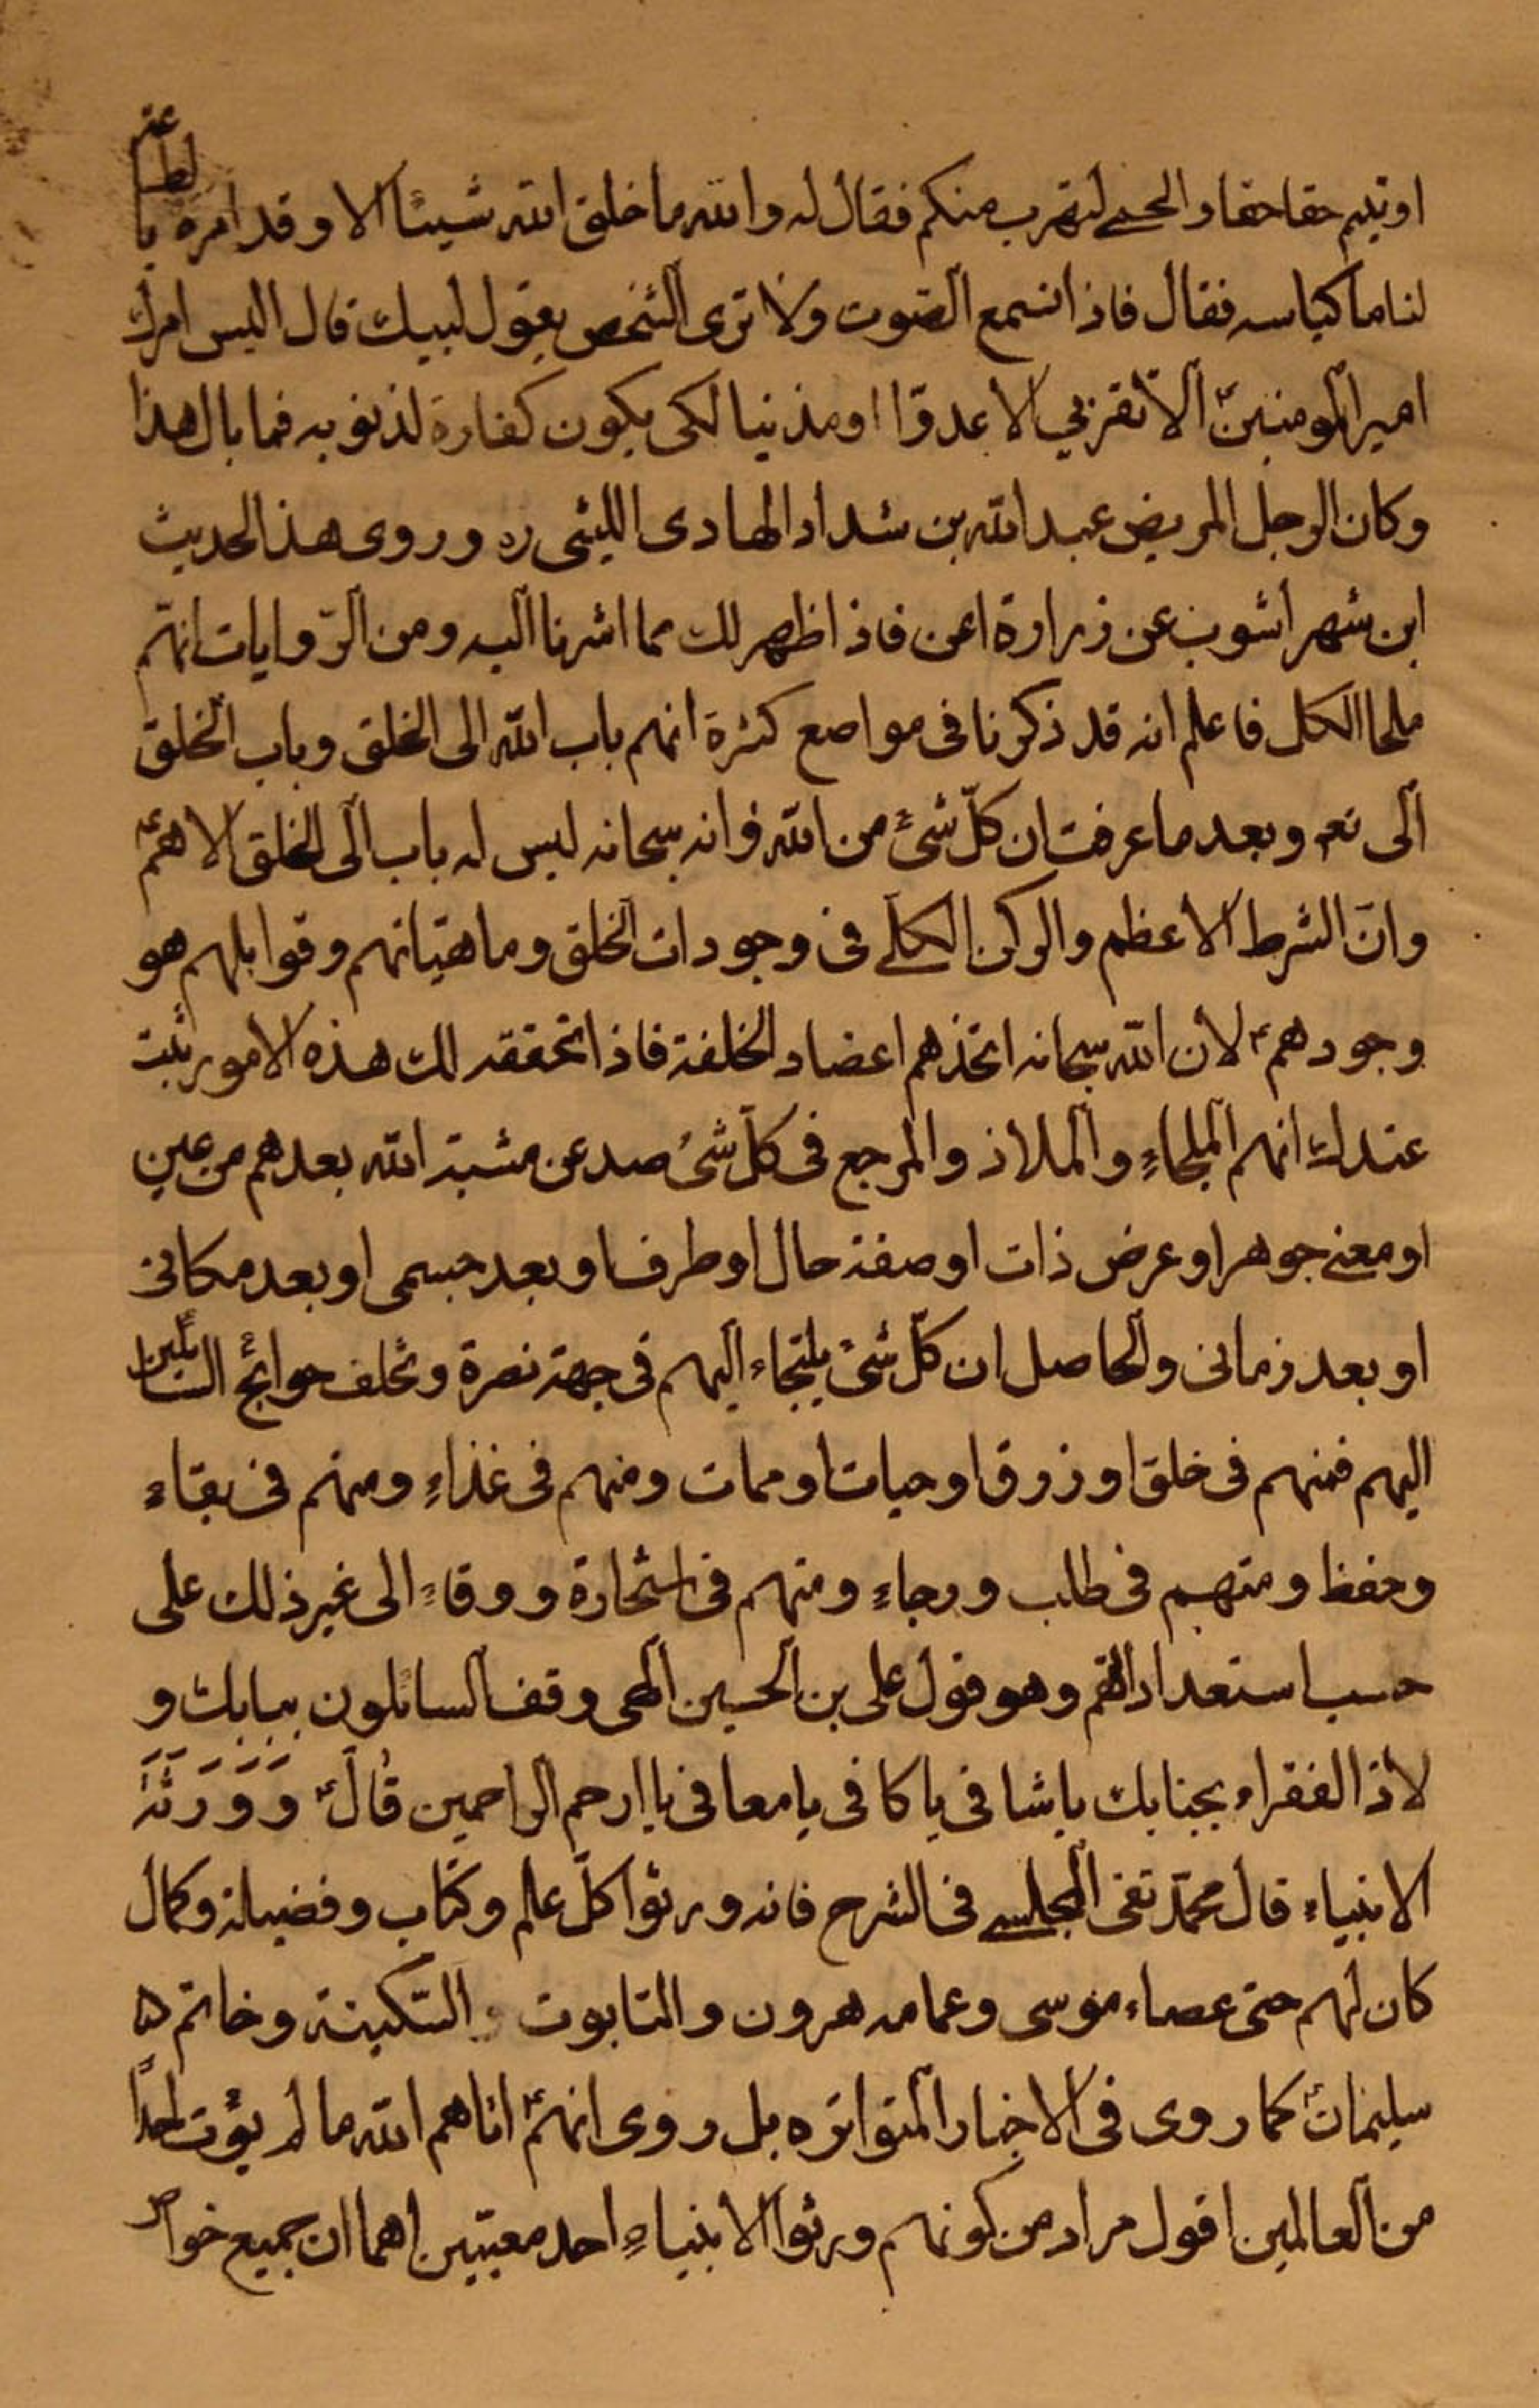 اوتيتم حقا حقا والحمى لتهرب منكم فقال له والله ما خلق الله شيئا الا وقد امره بالطاعة
لنا ما كباسه فقال فاذا نسمع الصوت ولا نرى الشخص يقول لبيك قال اليس امرك
امير المومنين ألا تقربي الا عدوّا او مذنبا لكى يكون كفارة لذنوبه فما بال هذا
وكان الرجل المريض عبد الله بن شداد الهادى الليثى ره وروى هذا الحديث
ابن شهر اشوب عن زرارة اعن فاذا ظهر لك مما اشرنا اليه ومن الروايات انهم
ملجا الكل فاعلم انه قد ذكرنا فى مواضع كثرة انهم باب الله الى الخلق وباب الخلق
الى تعه وبعد ما عرفت ان كلّ شىء من الله وانه سبحانه ليس له باب الى الخلق الا هم ع
وانّ الشرط الاعظم والركن الكلى فى وجودات الخلق وماهيّاتهم وقوابلهم هو
وجودهم ع لان الله سبحانه اتخذهم اعضاد الخلقة فاذا تحققه لك هذه الامور ثبت
عندك انهم الملجاء والملاذ والمرجع فى كلّ شىء صد عن مشية الله بعدهم من عين
او معنى جوهر او عرض ذات او صفة حال او ظرف او بعد جسمى او بعد مكانى
او بعد زمانى والحاصل ان كلّ شىء يلتجاء اليهم فى جهة نصرة وتخلف حوائج السائلين
اليهم فمنهم فى خلق او رزق او حيات او ممات ومنهم فى غذاء ومنهم فى بقاء
وحفظ ومنهم فى طلب ورجاء ومنهم فى استجارة ووقاء الى غير ذلك على
حسب استعداداتهم وهو قول على بن الحسين الهى وقف السائلون ببابك و
لاذ الفقراء بجنابك يا شافى يا كافى يا معافى يا ارحم الراحمين قال ع وَوَرَثَة
الانبياء قال محمّد تقى المجلسى فى الشرح فانه ورثوا كلّ علم وكتاب وفضيلة وكمال
كان لهم حتى عصاء موسى وعمامه هرون والتابوت و السّكينة وخاتم
سليمان ع كما روى فى الاخبار المتواتره بل روى انهم ع اتاهم الله ما لم يؤت احداً
من العالمين اقول مراد من كونهم ورثوا الانبياء احد معنيين اهما ان جميع خواص